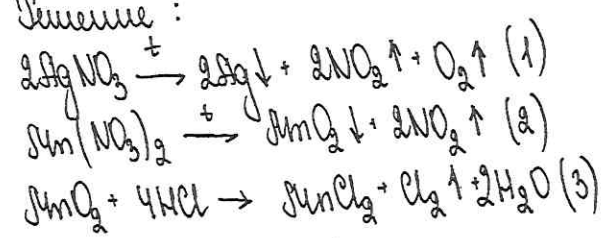 Решение:
2AgNO₃ →ᵗ 2Ag↓ + 2NO₂↑ + O₂↑ (1)
Mn(NO₃)₂ →ᵗ MnO₂↓ + 2NO₂↑ (2)
MnO₂ + 4HCl → MnCl₂ + Cl₂↑ + 2H₂O (3)